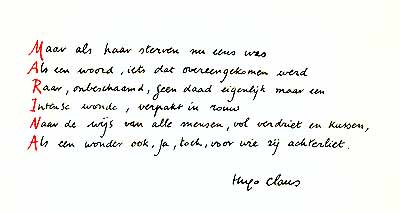 Maar als haar sterven nu eens was
Als een woord, iets dat overeengekomen werd
Raar, onbeschaamd, geen daad eigenlijk maar een
Intense wonde, verpakt in rouw
Naar de wijs van alle mensen, vol verdriet en kussen,
Als een wonder ook, ja, toch, voor wie zij achterliet.
Hugo Claus